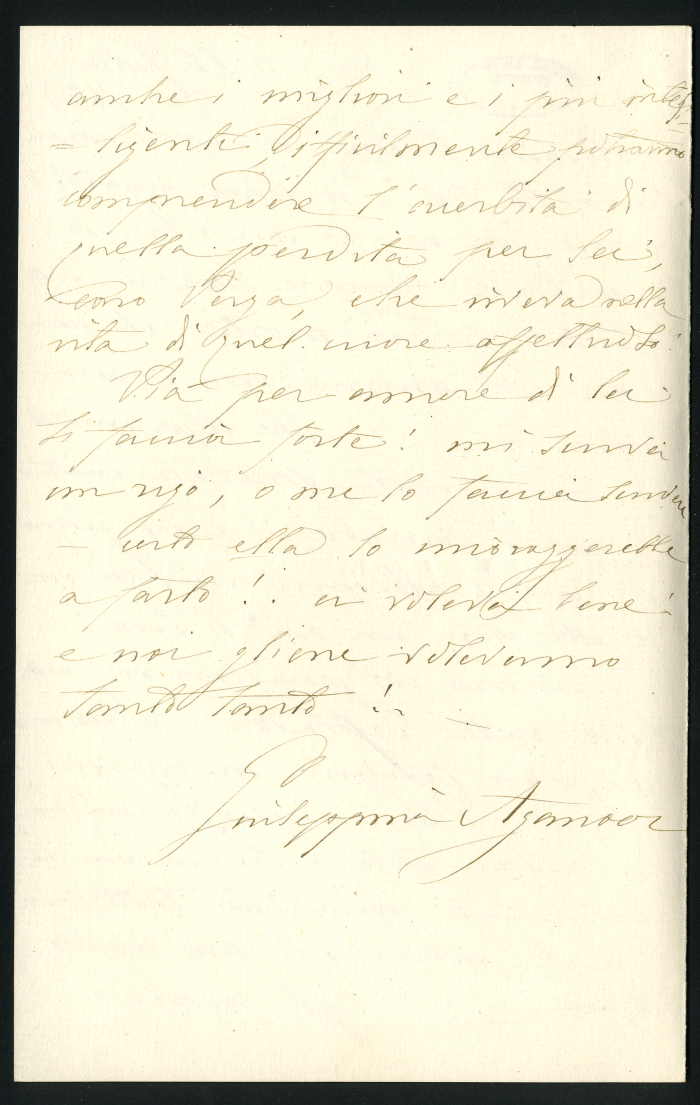 anche i migliori e i più intel
= ligenti, difficilmente potranno
comprendere l'acerbità di
quella perdita per lei,
caro Verga, che viveva nella
vita di quel cuore affettuoso!
Via per amore di lei
si faccia forte! mi scriva
un rigo, o me lo faccia scrivere
– certo ella lo incoraggerebbe
a farlo!. ci voleva bene
e noi gliene volevamo
tanto tanto!..
Giuseppina Aganoor